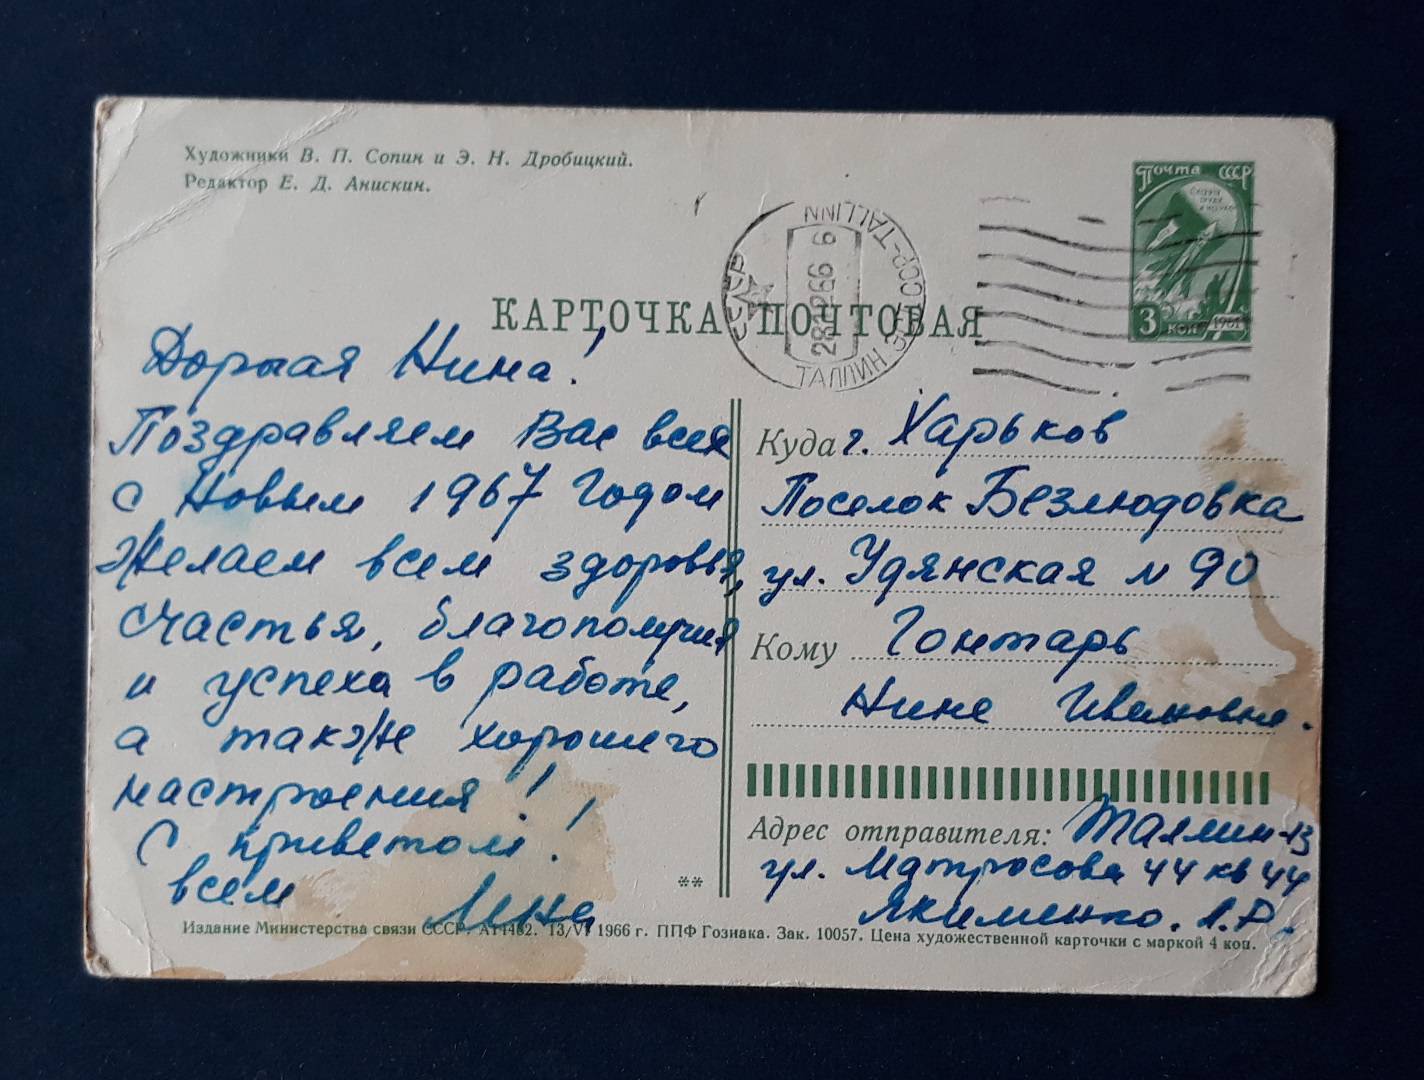 Художники В. П. Сопин и Э. Н. Дробицкий.
Редактор Е. Д. Анискин.
Почта СССР
3 коп 1961
СССР
TALLINN
28 12 66 6
ТАЛЛИН ЭССР-TALLINN
КАРТОЧКА ПОЧТОВАЯ
Дорогая Нина!
Поздравляем Вас всех
с Новым 1967 Годом
Желаем всем здоровья,
счастья, благополучия
и успеха в работе,
а также хорошего
настроения!
С приветом!
всем Лина
Куда г. Харьков
Поселок Безлюдовка
ул. Удянская N 90
Кому Гонтарь
Нине Ивановне.
Адрес отправителя: Таллин-13
ул. Матросова 44 кв 44
Якименко. Л.Р.
**
Издание Министерства связи СССР. А11482. 13/VI 1966 г. ППФ Гознака. Зак. 10057. Цена художественной карточки с маркой 4 коп.